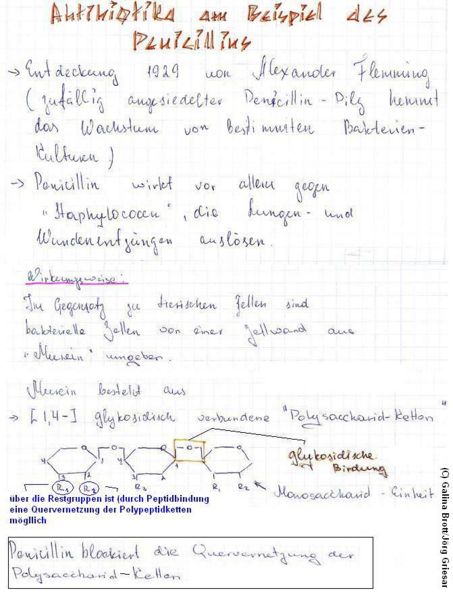 Antibiotika am Beispiel des
Penicillins
→ Entdeckung 1929 von Alexander Flemming
(zufällig angesiedelter Penicillin-Pilz hemmt
das Wachstum von bestimmten Bakterien-
kulturen)
→ Penicillin wirkt vor allem gegen
"Staphylococen", die Lungen- und
Wundenentzüngen auslösen.
Wirkungsweise:
Im Gegensatz zu tierischen Zellen sind
bakterielle Zellen von einer Zellwand aus
"Murein" umgeben.
Murein besteht aus
→ [1,4-] glykosidisch verbundene "Polysaccharid-Ketten"
glykosidische
Bindung
O O O O O
4 1 4 1
3 2
R1 R2 R1 R2
Monosaccharid-Einheit
über die Restgruppen ist (durch Peptidbindung
eine Quervernetzung der Polypeptidketten
mögllich
Penicillin blockiert die Quervernetzung der
Polysaccharid-Ketten
(C) Galina Brott/Jörg Griesar